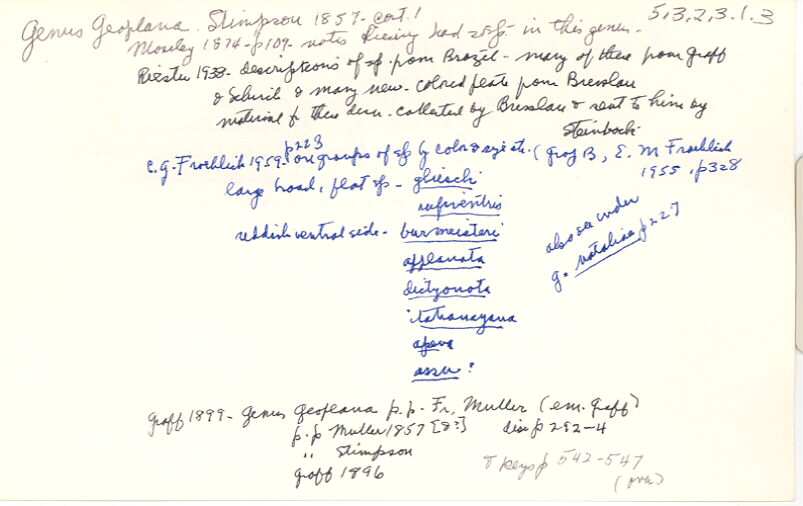 Genus Geoplana. Stimpson 1857 - cont! 5,3,2,3.1.3
Moseley 1874 - p109 - notes Diesing had 25 sp. in this genus.
Riester 1938 - descriptions of sp. from Brazil - many of these from Graff
& Schirch & many new - colored plate from Bresslau
material & these descr. collected by Bresslau & sent to him by
Steinböck
C.G. Froehlich 1959 - p223 on groups of sp by color & eyes etc. (group B, E. M Froehlich
1955, p328
large broad, flat sp - gliesch
rufiventris
reddish ventral side - burmeisteri
applanata
dictyonota
itatiayana
apeva
assu?
also see under
G. nataliae p227
Graff 1899 - Genus Geoplana p.p. Fr. Muller (em. Graff)
p.p Muller 1857 [8?] disc p 292-4
" Stimpson
Graff 1896
& keys p 542-547
(over)